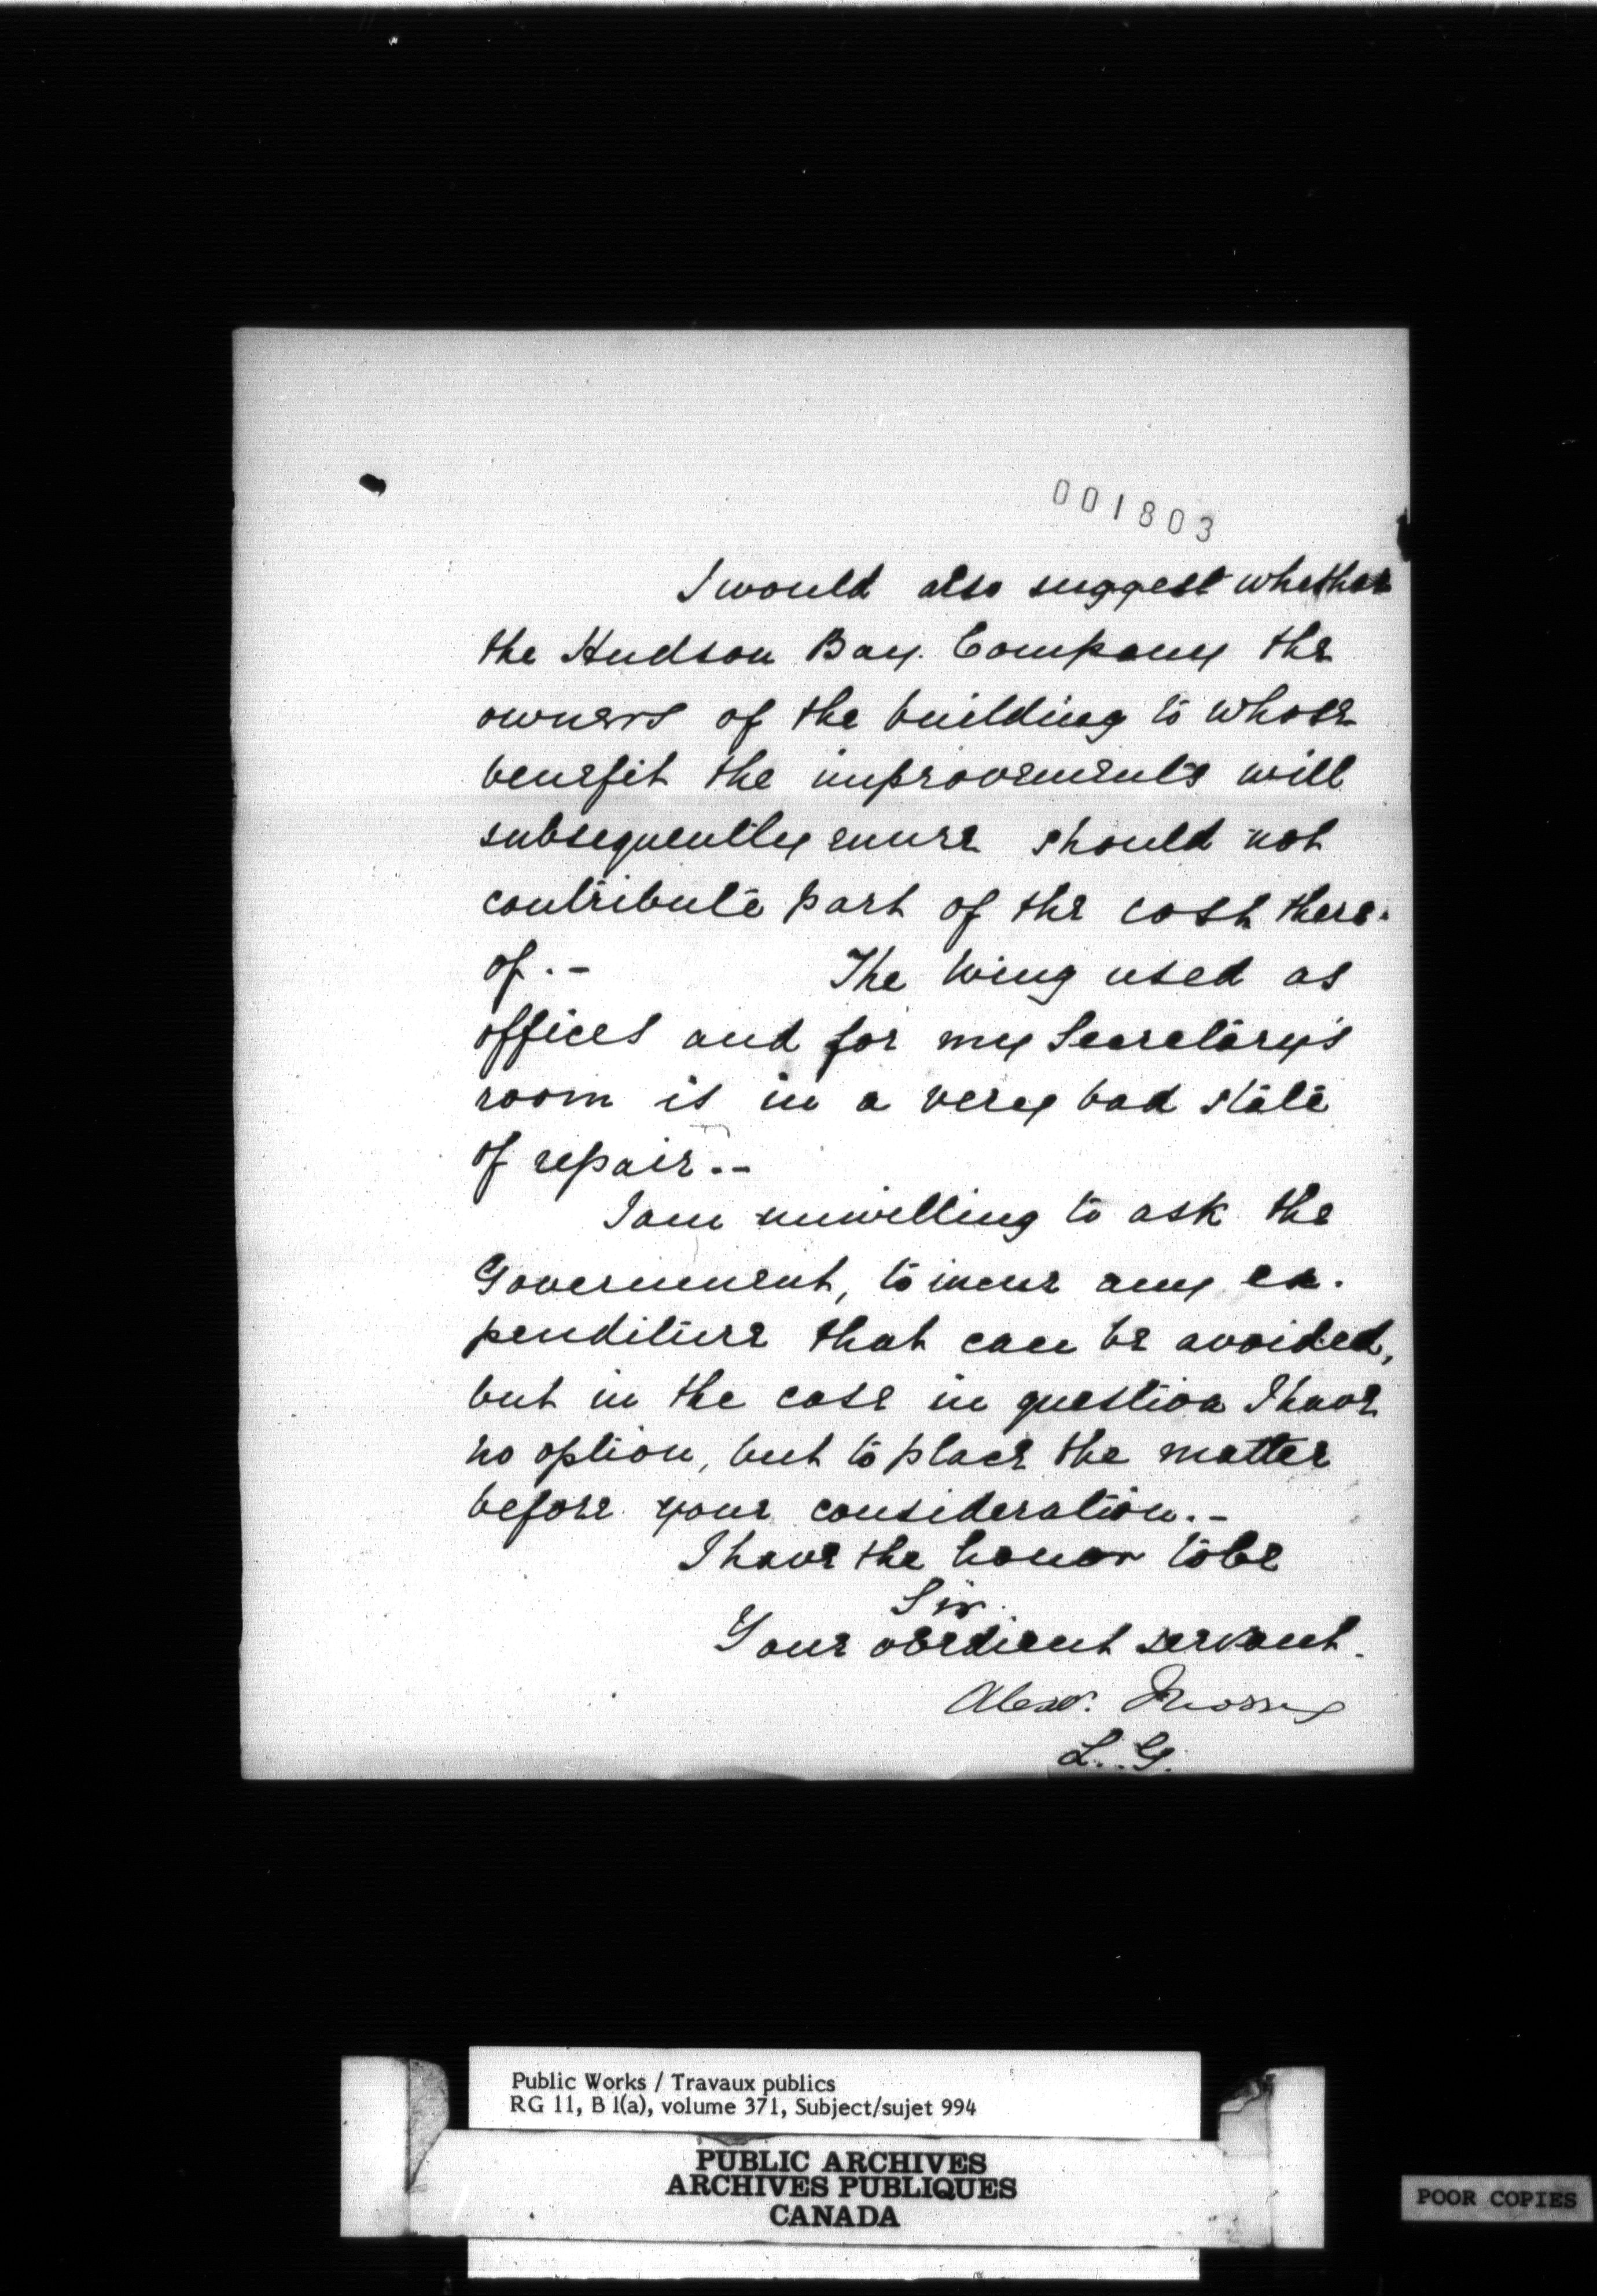 001803
I would also suggest whether
the Hudson Bay Company the
owners of the building to whose
benefit the improvements will
subsequently enure should not
contribute part of the cost there-
of.- The wing used as
offices and for my Secretary's
room is in a very bad state
of repair.-
I am unwilling to ask the
Government, to incur any ex-
penditure that can be avoided,
but in the case in question I have
no option, but to place the matter
before your consideration.-
I have the honor to be
Sir.
Your obedient servant.
Alexr. Morris
L.G.
Public Works / Travaux publics
RG 11, B 1(a), volume 371, Subject/sujet 994
PUBLIC ARCHIVES
ARCHIVES PUBLIQUES
CANADA
POOR COPIES